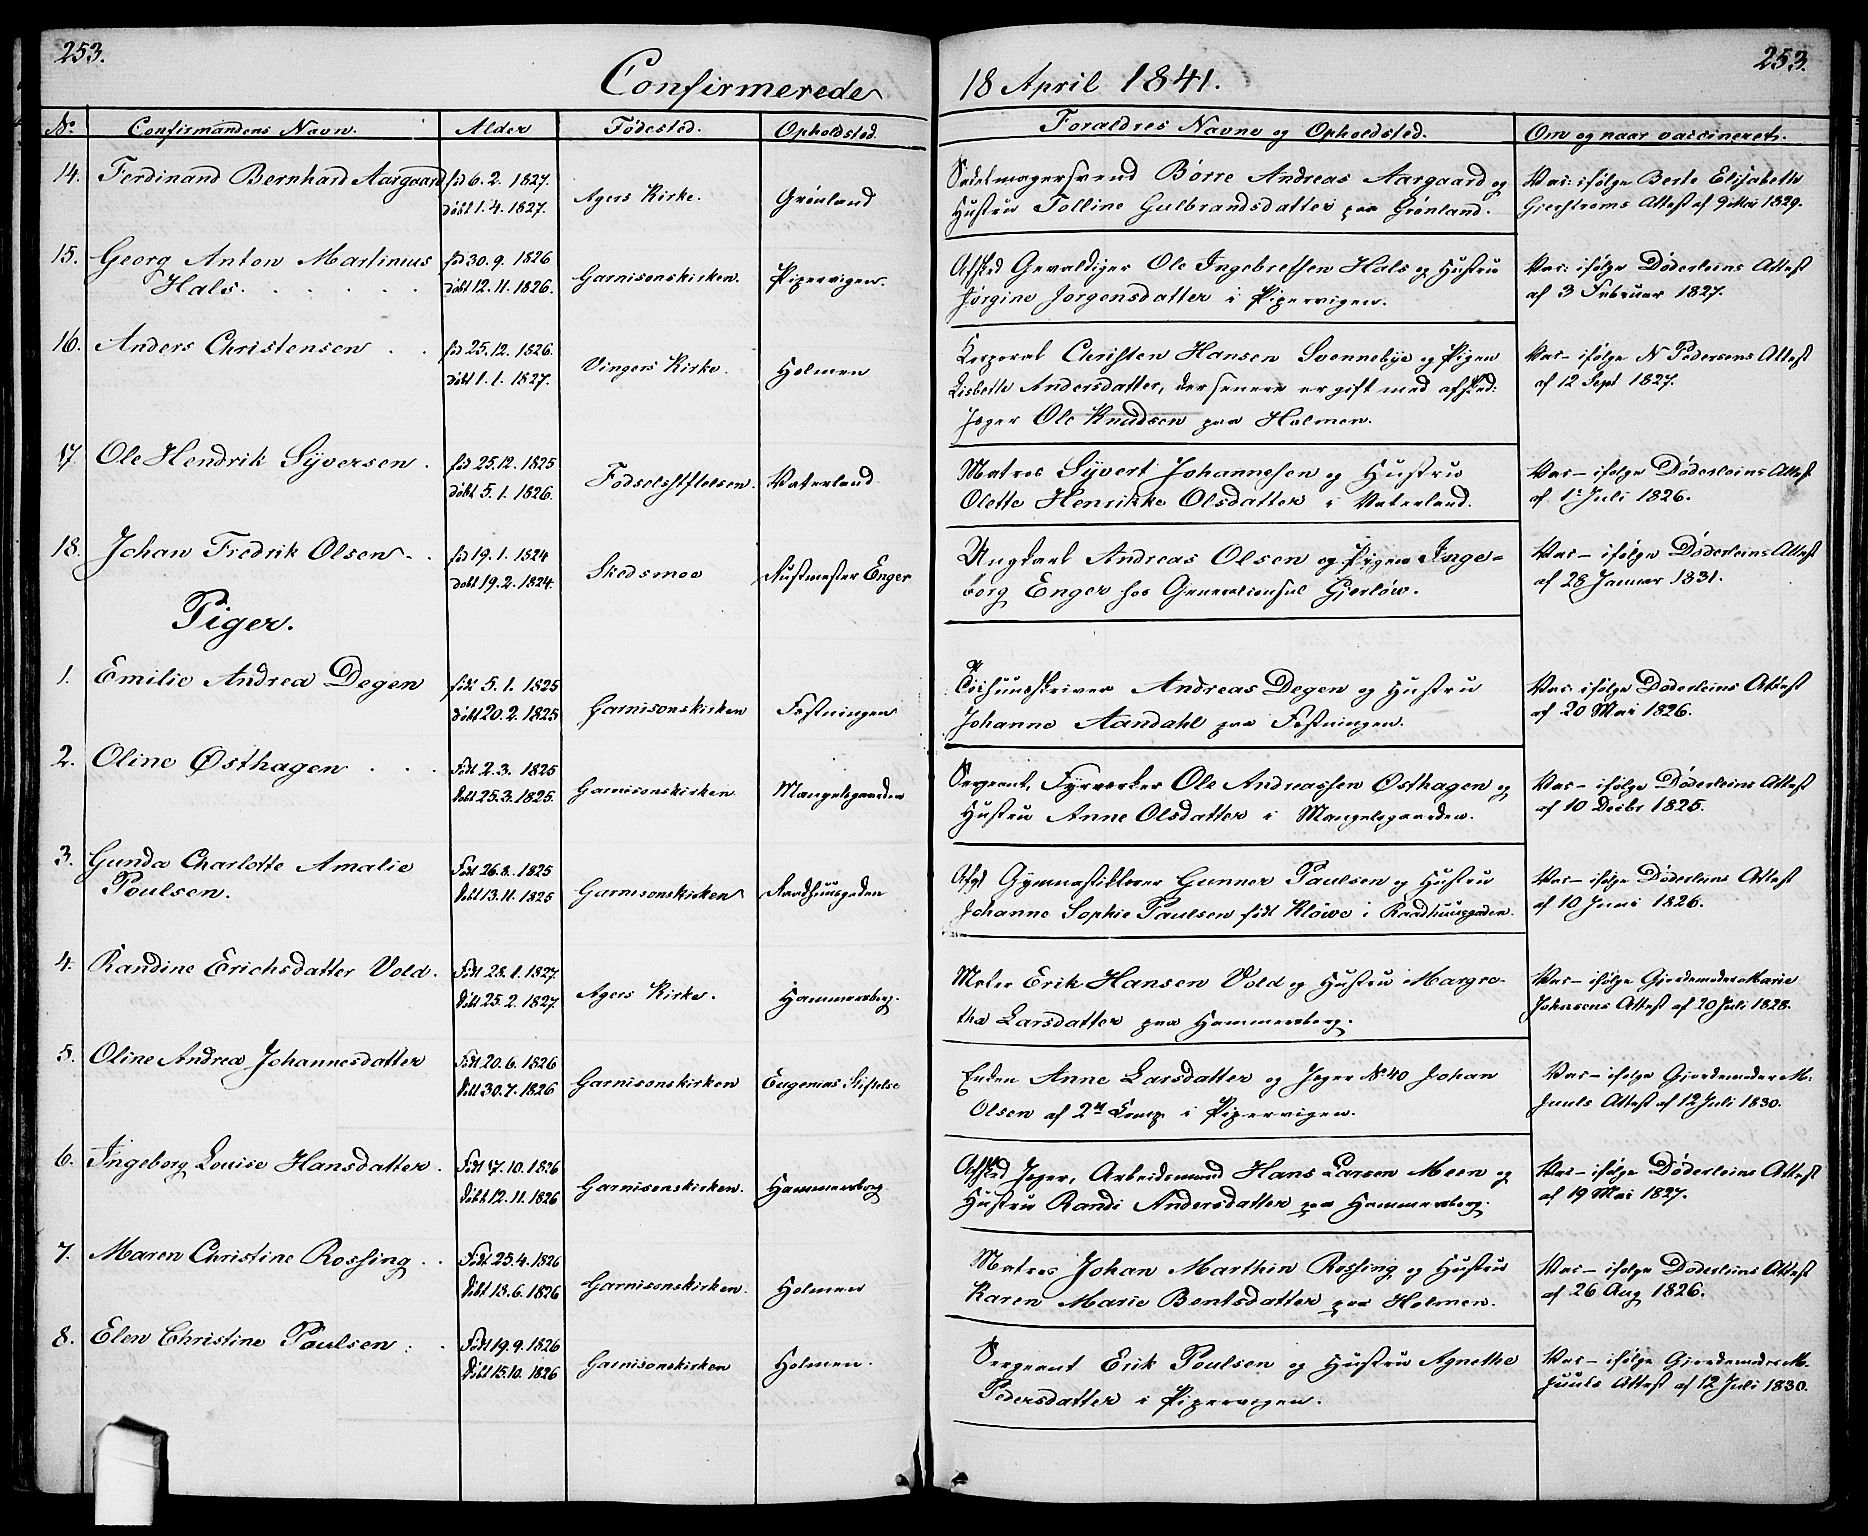 253.
253.
Confirmerede 18 April 1841.
No Confirmandens Navn. Alder Fødested. Opholdsted. Foraldres Navne og Opholdsted. Om og naar vaccineret.
14. Ferdinand Bernhard Aargaard fød 6. 2. 1827. Agers Kirke. Grønland Sadelmagersvend Børre Andreas Aargaard og Vac: ifølge Berte Elisabeth
døbt 1. 4. 1827. Hustru Tolline Gulbrandsdatter paa Grønland. Attest af 9 Mai 1829.
15. Georg Anton Martinius fød 30. 9. 1826 Garnisonskirken. Pipervigen. Afsked Gevaldiger Ole Ingebretsen Hals og Hustru Vac: ifølge Døderleins Attest
Hals. døbt 12. 11. 1826. Jørgine Jorgensdatter i Pipervigen. af 3 Februar 1827.
16. Anders Christensen fød 25. 12. 1826. Vingers Kirke. Holmen Corporal Christen Hansen Svennebye og Pigen Vac- ifølge N Pedersens Attest
døbt 1. 1. 1827. Lisbeth Andersdatter, der senere er gift med afsked: af 12 Sept 1827.
Jæger Ole Knudsen paa Holmen.
17. Ole Hendrik Syversen. fød 25. 12. 1825 Fødselsstiftelsen. Vaterland. Matros Syvert Johannesen og Hustru Vac- ifølge Døderleins Attest
døbt 5. 1. 1826. Olette Henrikke Olsdatter i Vaterland. af 1. Juli 1826.
18. Johan Fredrik Olsen. fød 19. 1. 1824 Skedsmoe Enger Ungkarl Andreas Olsen og Pigen Inge= Vac- ifølge Døderleins Attest
døbt 19. 2. 1824. borg Enger hos Generalconsul Gjerløw. af 28 Januar 1831.
Piger.
1. Emilie Andrea Degen født 5. 1. 1825 Garnisonskirken Festningen Andreas Degen og Hustru Vac: ifølge Døderleins Attest
døbt 20. 2. 1825 Johanne Aandahl paa Festningen. af 20 Mai 1826.
2. Oline Østhagen Født 2. 3. 1825 Garnisonskirken. Mangelsgaarden Sergeant, Fyrverker Ole Andreassen Østhagen og Vac- ifølge Døderleins Attest
døbt 25. 3. 1825. Hustru Anne Olsdatter i Mangelsgaarden. af 10 Decbr 1825.
3. Gunda Charlotte Amalie Født 26. 8. 1825 Garnisonskirken Raadhuusgaden Afgl Gymnastiklærer Gunner Paulsen og Hustru Vac- ifølge Døderleins Attest
Poulsen. Døbt 13. 11. 1825 Johanne Sophie Paulsen født Kløwe i Raadhuusgaden. af 10 Juni 1826.
4. Randine Erichsdatter Vold. Født 28. 1. 1827 Agers Kirke. Hammersborg. Erik Hansen Vold og Hustru Margre- Vac- ifølge Gjordemoder Marie
Døbt 25. 2. 1827 the Larsdatter paa Hammersborg. Johnsens Attest af 20 Juli 1828.
5. Oline Andrea Johannesdatter Født 20. 6. 1826 Garnisonskirken Eugenias Stiftelse Enken Anne Larsdatter og Jæger No 40 Johan Vac- ifølge Gjordemoder M.
Døbt 30. 7. 1826 Olsen af 2det Comp i Pipervigen. Juuls Attest af 12 Juli 1830.
6. Ingeborg Louise Hansdatter. Født 17. 10. 1826 Garnisonskirken. Hammersborg Afsked Jæger, Arbeidsmand Hans Larsen Moen og Vac- ifølge Døderleins Attest
Døbt 12. 11. 1826 Hustru Randi Andersdatter paa Hammersborg. af 19 Mai 1827.
7. Maren Christine Rossing. Født 25. 4. 1826 Garnisonskirken. Holmen Matros Johan Marthin Rossing og Hustru Vac- ifølge Døderleins Attest
Døbt 13. 6. 1826 Karen Marie Bentsdatter paa Holmen. af 26 Aug 1826.
8. Elen Christine Poulsen Født 19. 9. 1826 Garnisonskirken Holmen. Sergeant Erik Poulsen og Hustru Agnethe Vac- ifølge Gjordemoder M.
Døbt 15. 10. 1826 Pedersdatter i Pipervigen. Juuls Attest af 12 Juli 1830.